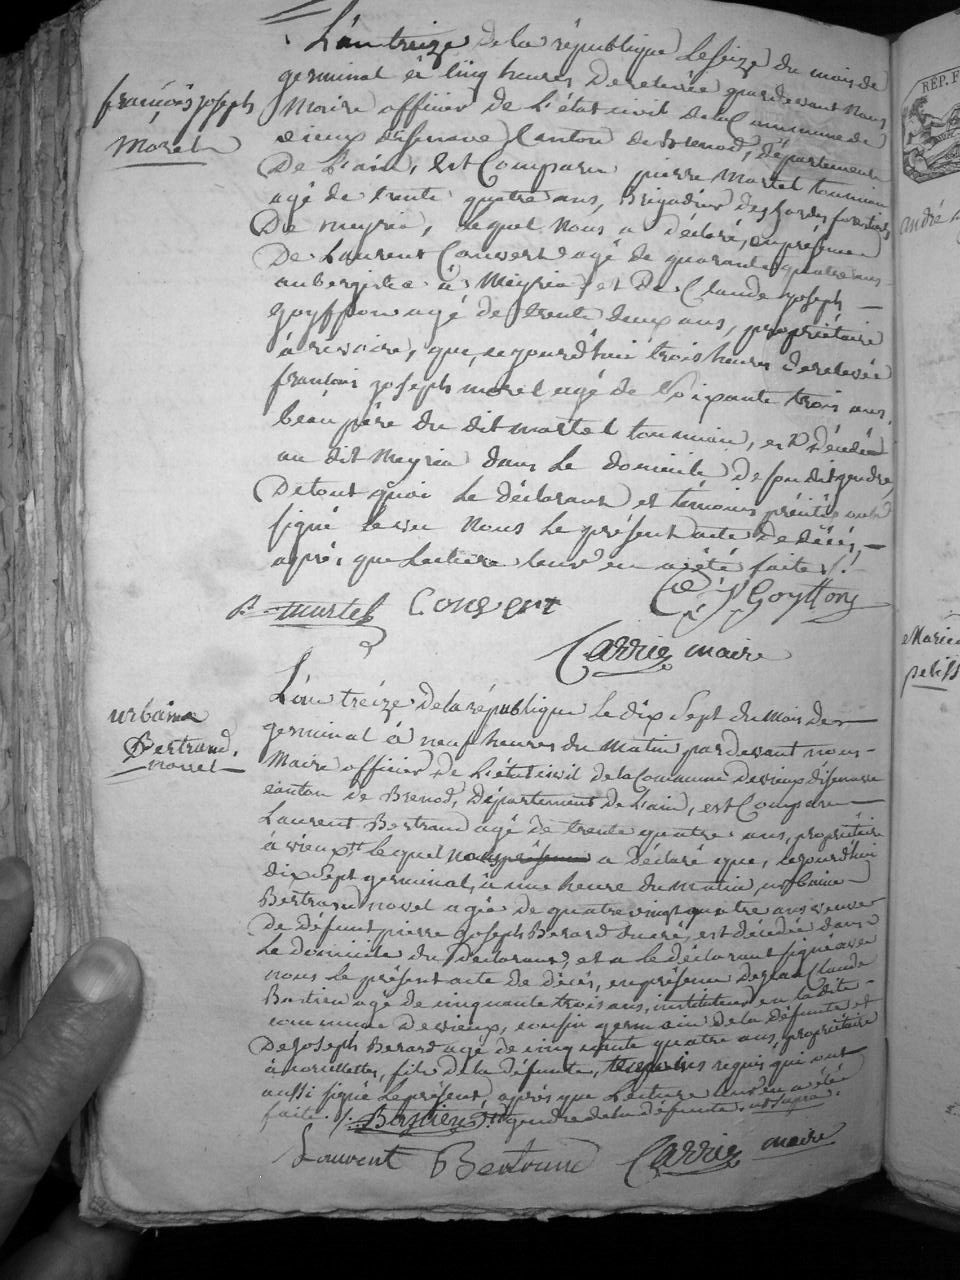 françois joseph
Morel
L'an treize de la république le seize du mois de
germinal à cinq heures de relevée pardevant nous
Maire officier de l'état civil de la Commune de
vieux disenave Canton de Brenod, département
De l'ain, Est Comparu pierre Martel tournian
agé de trente quatre ans, Brigadier des gardes forestiers
De meyria, lequel nous a déclaré, en présence
De Laurent Convert agé de quarante quatre ans
aubergiste à Meyria, et de Claude joseph
Goyffon agé de trente deux ans, propriétaire
à que, cejourd'hui trois heures de relevée
francois joseph morel agé de soixante trois ans,
beau père du dit martel tournian, est décédé
au dit Meyria dans le domicile de son dit gendre,
De tout quoi le déclarant et témoins précités ont
signé avec nous le présent acte de décès,
après que lecture leur en a été faite ./.
P. martel Convert C. J. Goyffon
Carrier maire
urbaine
Bertrand
novel
L'an treize de la république le dix sept du mois de
germinal à neuf heures du matin pardevant nous
Maire officier de l'état civil de la Commune de vieux disenave
canton de Brenod, Département de l'ain, est Comparu
Laurent Bertrand agé de trente quatre ans, propriétaire
à vieux lequel nous présence a déclaré que, cejourd'hui
dix sept germinal, à une heure du matin, urbaine
Bertrand novel agée de quatre vingt quatre ans veuve
de défunt pierre joseph Berard ducré, est décédée dans
Le domicile du déclarant, et a le déclarant signé avec
nous le présent acte de décès, en présence de jean Claude
Bastien agé de cinquante trois ans, instituteur en la dite
commune de vieux, cousin germain de la défunte et
De joseph Berard agé de cinquante quatre ans, propriétaire
à fils de la défunte, témoins requis qui ont
aussi signé le présent, après que lecture leur en a été
faite ./. Bastien gendre de la défunte ut supra.
Laurent Bertrand Carrier maire
REP. F
andré
Marie
peliss